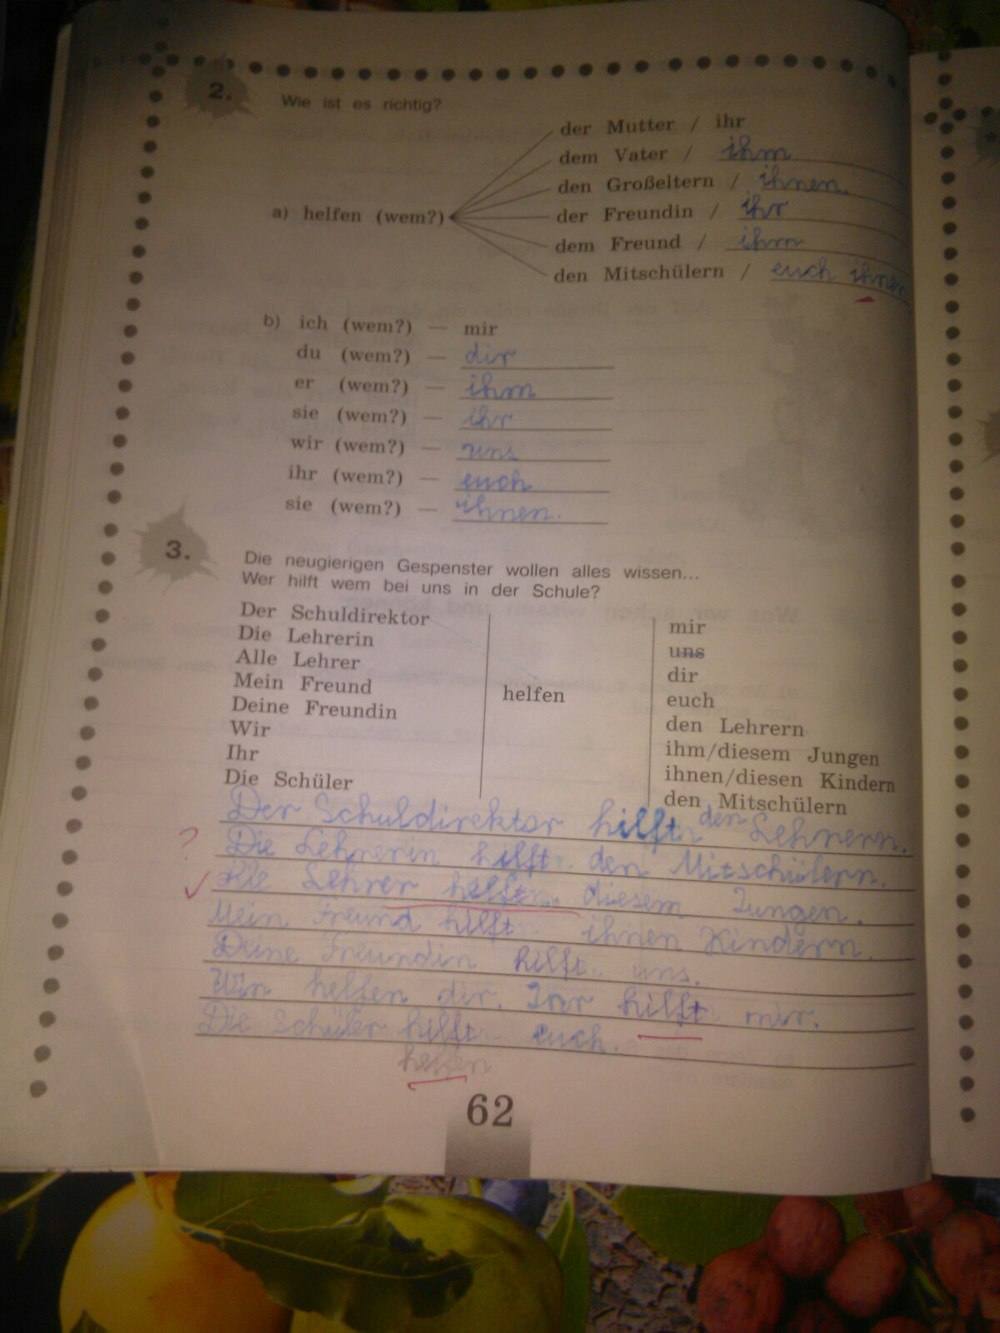 2. Wie ist es richtig?
der Mutter / ihr
dem Vater / ihm
den Großeltern / ihnen
a) helfen (wem?) der Freundin / ihr
dem Freund / ihm
den Mitschülern / euch ihnen
b) ich (wem?) — mir
du (wem?) — dir
er (wem?) — ihm
sie (wem?) — ihr
wir (wem?) — uns
ihr (wem?) — euch
sie (wem?) — ihnen.
3. Die neugierigen Gespenster wollen alles wissen...
Wer hilft wem bei uns in der Schule?
Der Schuldirektor
Die Lehrerin
Alle Lehrer
Mein Freund
Deine Freundin
Wir
Ihr
Die Schüler
helfen
mir
uns
dir
euch
den Lehrern
ihm/diesem Jungen
ihnen/diesen Kindern
den Mitschülern
Der Schuldirektor hilft den Lehrern.
? Die Lehrerin hilft den Mitschülern.
Alle Lehrer diesem Jungen.
Mein Freund hilft ihnen Kindern.
Deine Freundin hilft uns.
Wir helfen dir. Ihr hilft mir.
Die Schüler hilft euch.
helfen
62